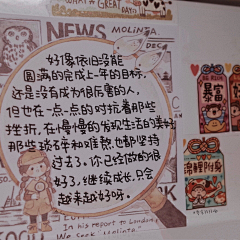 WHAT A GREAT DAY!
NEWS
MOLINTA
DEC
好像依旧没能
圆满的完成上一年的目标,
还是没有成为很厉害的人,
但也在一点一点的对抗着那些
挫折,在慢慢的发现生活的美好
那些琐碎和难熬,也都坚持
过去了,你已经做的很
好了,继续成长,只会
越来越好呀。
In his report to London,
We Seek "Molinta"
暴富
锦鲤附身